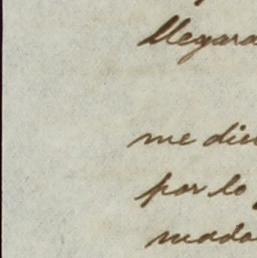 llegara
me die
por lo
modo